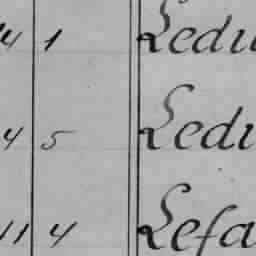 4 1 Ledu
4 5 Ledu
11 4 Lefa